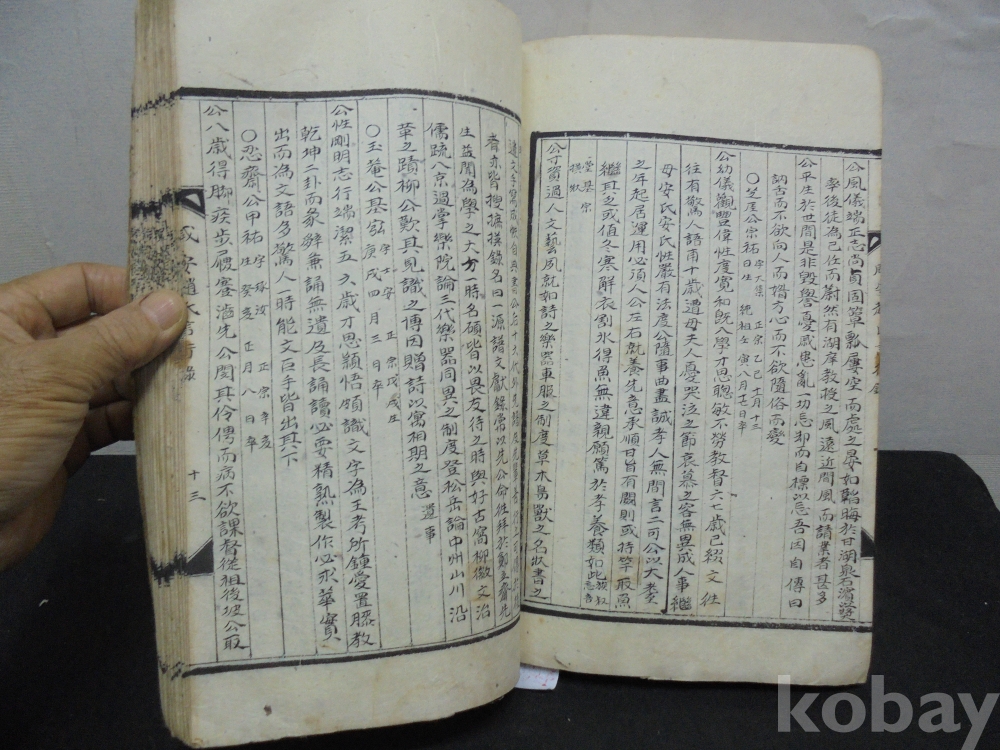 公風儀端正志尚貞固簞瓢屢空而處之晏如鞱晦於甘湖泉石
李後徒為己任而蔚然有湖庠教授之風遠近聞風而請業者甚多
公平生於世間是非毀譽憂戚患亂一切忘却而自標以忘吾因自傳曰
訥舌而不欲向人而婿方心而不欲隨俗而變
○芝崖公宗祐 字大集 正宗乙巳七月十三日生 純祖 寅八月十七日卒
公幼儀觀豐偉性度寬和旣入學才思聰敏不勞教智六七歲已綴文往
往有驚人語甫十歲遭母夫人憂哭泣之節哀慕之容無異成人事繼
母安氏安氏性嚴有法度公隨事曲盡誠孝人無間言二可公以大耋
之年起居運用必須人公左右就養先意承順日旨有闕則或持竿取魚
繼耳之或値冬寒解衣割氷得魚無違親願篤於孝養類如此
堂基宗撰狀
公才資過人文藝夙就如詩之樂器車服之制度草木鳥獸之名狀書之
者亦皆搜摭摸錄名曰一源譜文獻錄常以先公命往拜於鄭立齋先
生益聞為學之大方時名碩皆以畏友待之時與好古窩柳徽文治
儒疏入京過掌樂院論三代樂器同異之制度登松岳論中州山川沿
革之蹟柳公歎其見識之博因贈詩以寓相期之意 遺事
○玉菴公基弘 字士字 正宗戊戌生 庚戌四月三日卒
公性剛明志行端潔五六歲才思穎悟頗識文字為王考所鍾愛置膝教
乾坤二卦而彖辭兼誦無遺及長誦讀必要精熟製作必求華實
出而為文語多驚人一時能文巨手皆出其下
○忍齋公甲祐 字琢汝 正宗辛亥生 癸亥正月八日卒
公八歲得脚疾步履蹇澁先公閔其伶俜而病不欲課督從祖後坡公取
十三